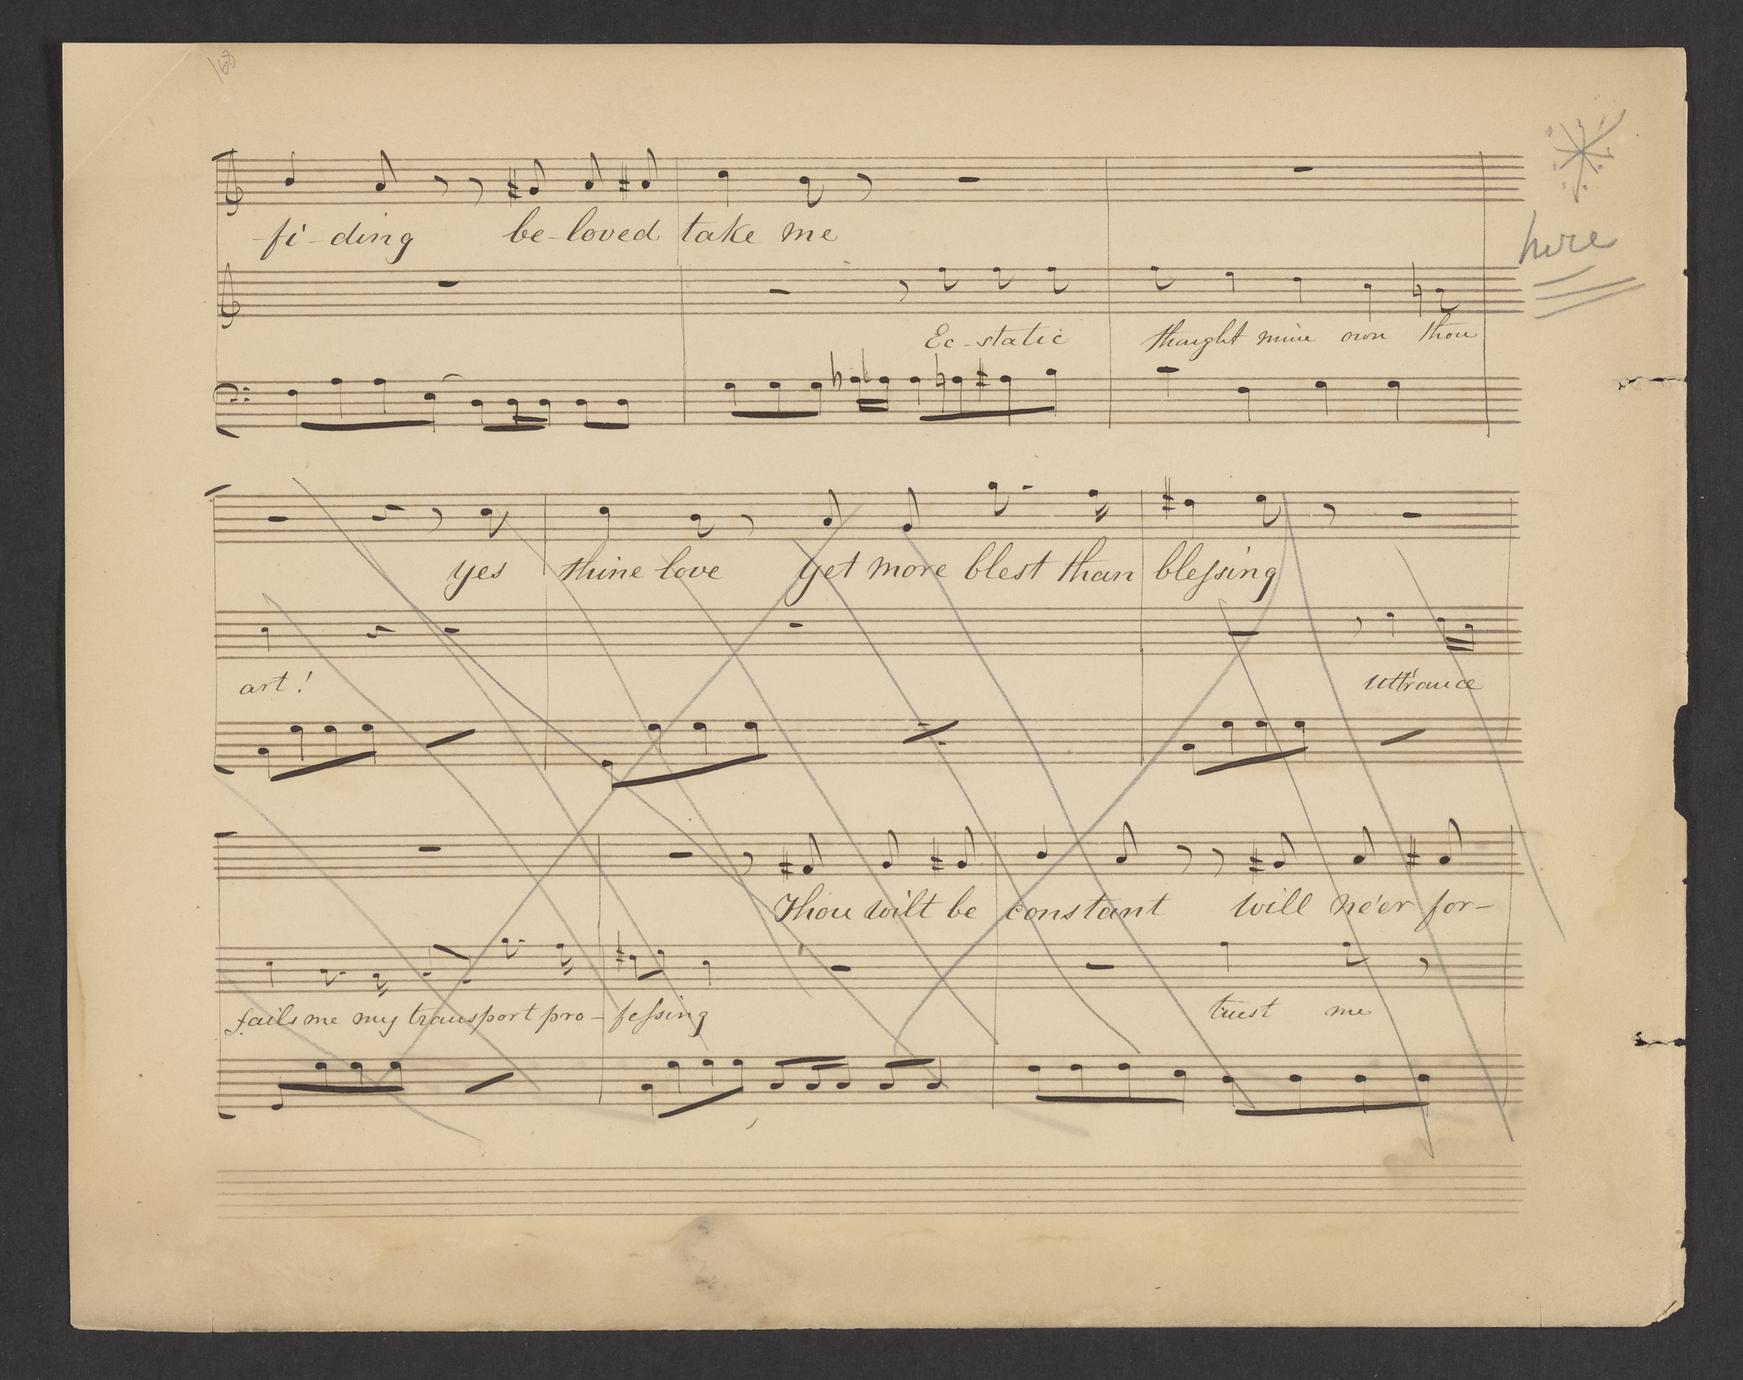 168
fi-ding be-loved take me
here
Ec-static thought mine own thou
yes thine love yet more blest than blessing
art! utt'rance
Thou wilt be constant will ne'er for-
fails me my transport pro-fessing trust me